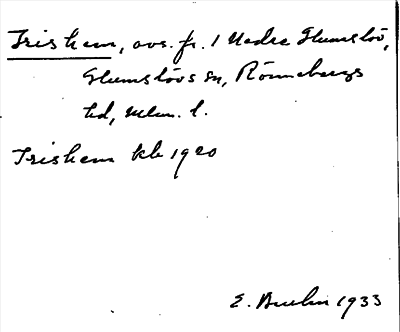 Friskem, avs. fr. 1 Nedre Glumslöv,
Glumslövs sn, Rönnebergs
hd, Mlm. l.
Friskem kb 1920
E. 1933